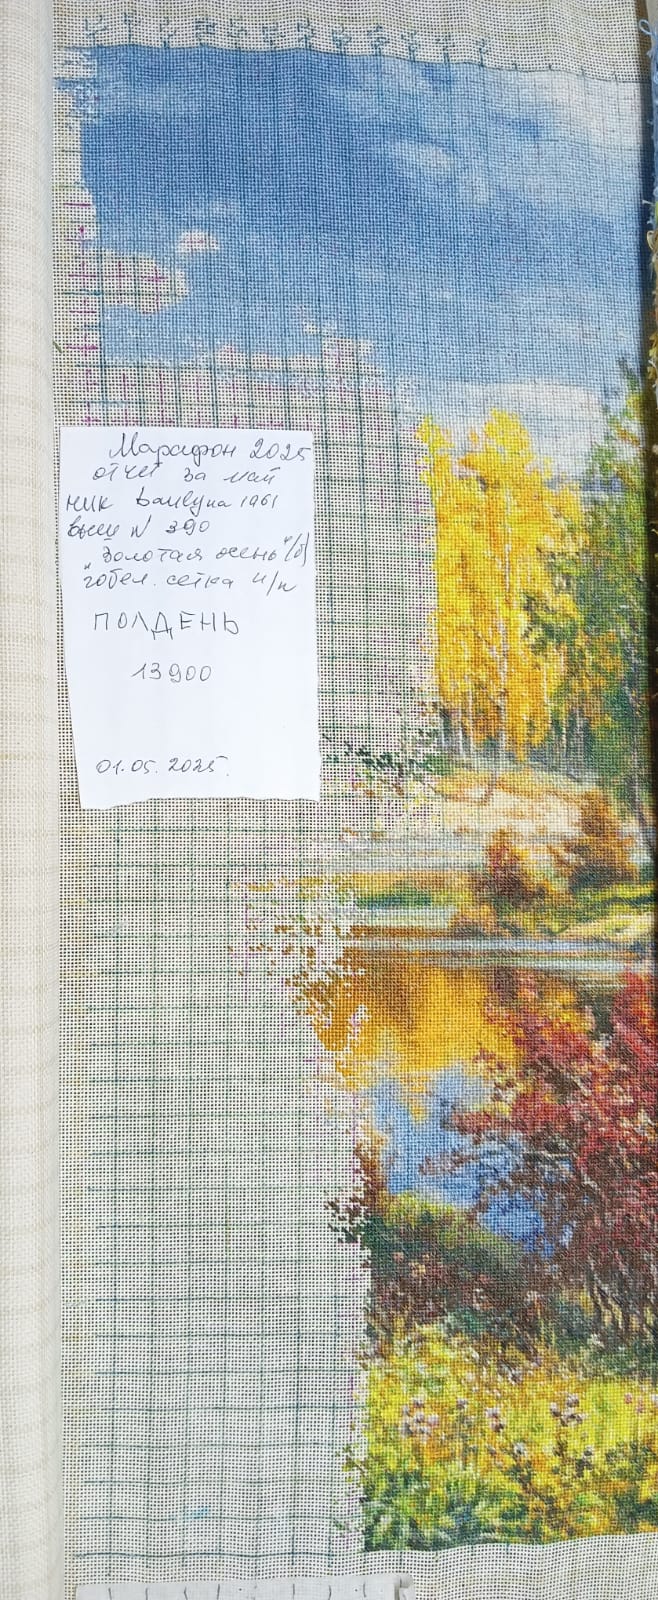 Марафон 2025
отчет за май
ник Валеуна 1961
выш N 390
"Золотая осень" (б)
гобел. сетка н/п
ПОЛДЕНЬ
13900
01.05.2025.